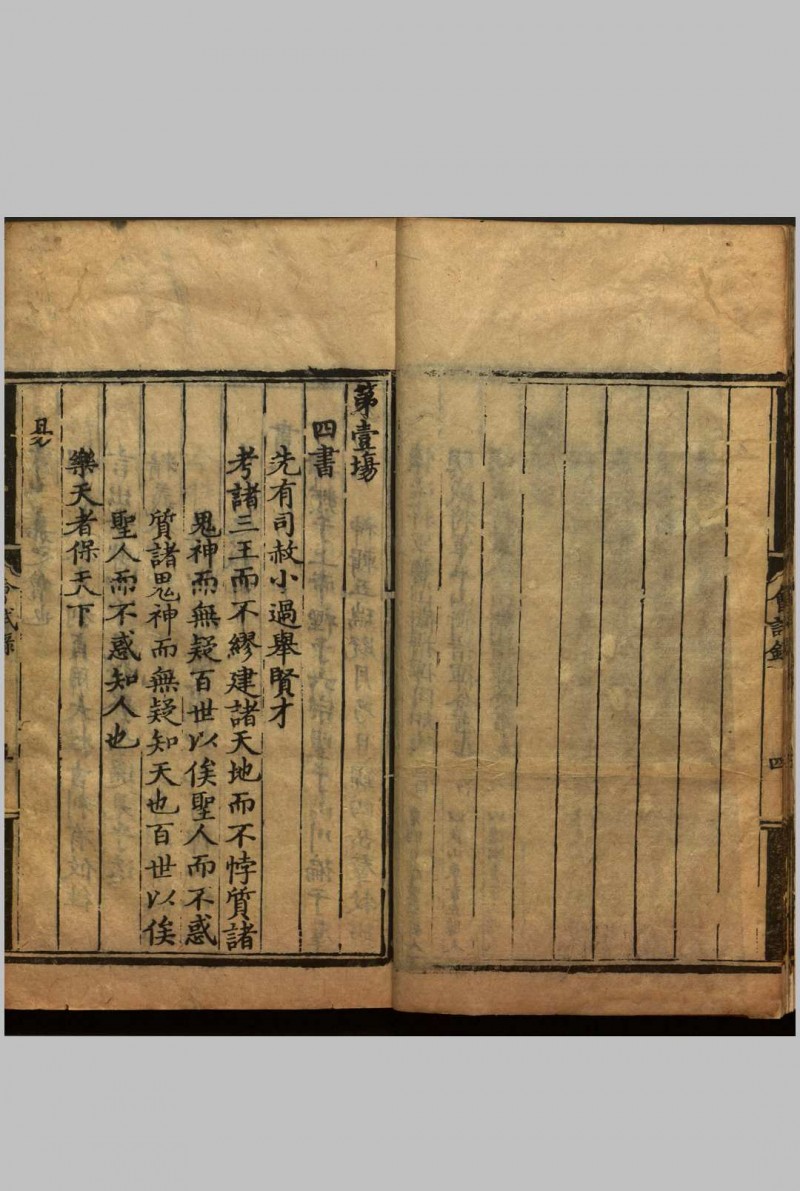 會試錄
四
第壹場
四書
先有司赦小過舉賢才
考諸三王而不繆建諸天地而不悖質諸
鬼神而無疑百世以俟聖人而不惑
質諸鬼神而無疑知天也百世以俟
聖人而不惑知人也
樂天者保天下
易
會試錄